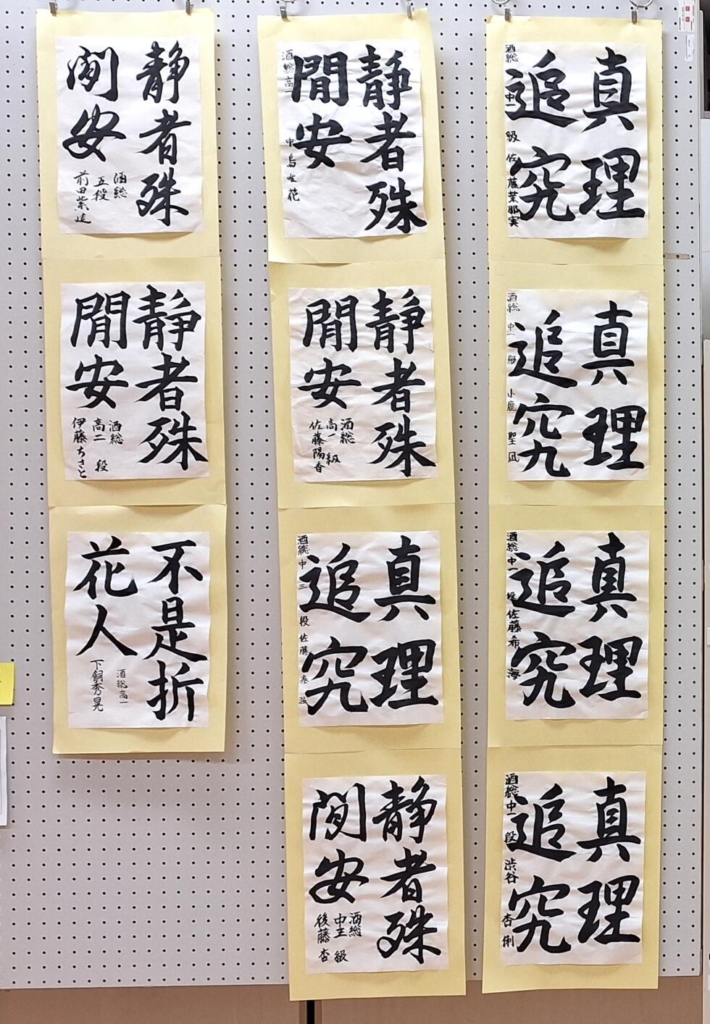 真理
追究
酒総 中一 級 佐藤茉那実
真理
追究
酒総 中一
真理
追究
酒総 中一 段 佐藤希海
真理
追究
酒総 中一 段 渋谷 杏俐
静者殊
閒安
酒総 高一
静者殊
閒安
酒総
高一 級
佐藤陽香
真理
追究
酒総 中三 段 佐藤
静者殊
閒安
酒総
中三 級
後藤 杏
静者殊
閒安
酒総
五段
静者殊
閒安
酒総
高二 段
伊藤ちさと
不是折
花人
酒総高一